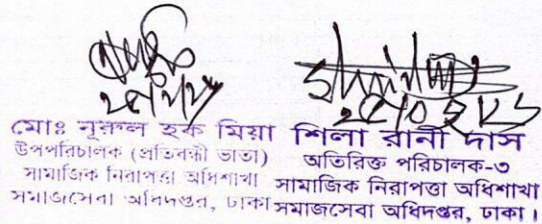 মোঃ নূরুল হক মিয়া
উপপরিচালক (প্রতিবন্ধী ভাতা)
সামাজিক নিরাপত্তা অধিশাখা
সমাজসেবা অধিদপ্তর, ঢাকা
শিলা রানী দাস
অতিরিক্ত পরিচালক-৩
সামাজিক নিরাপত্তা অধিশাখা
সমাজসেবা অধিদপ্তর, ঢাকা।